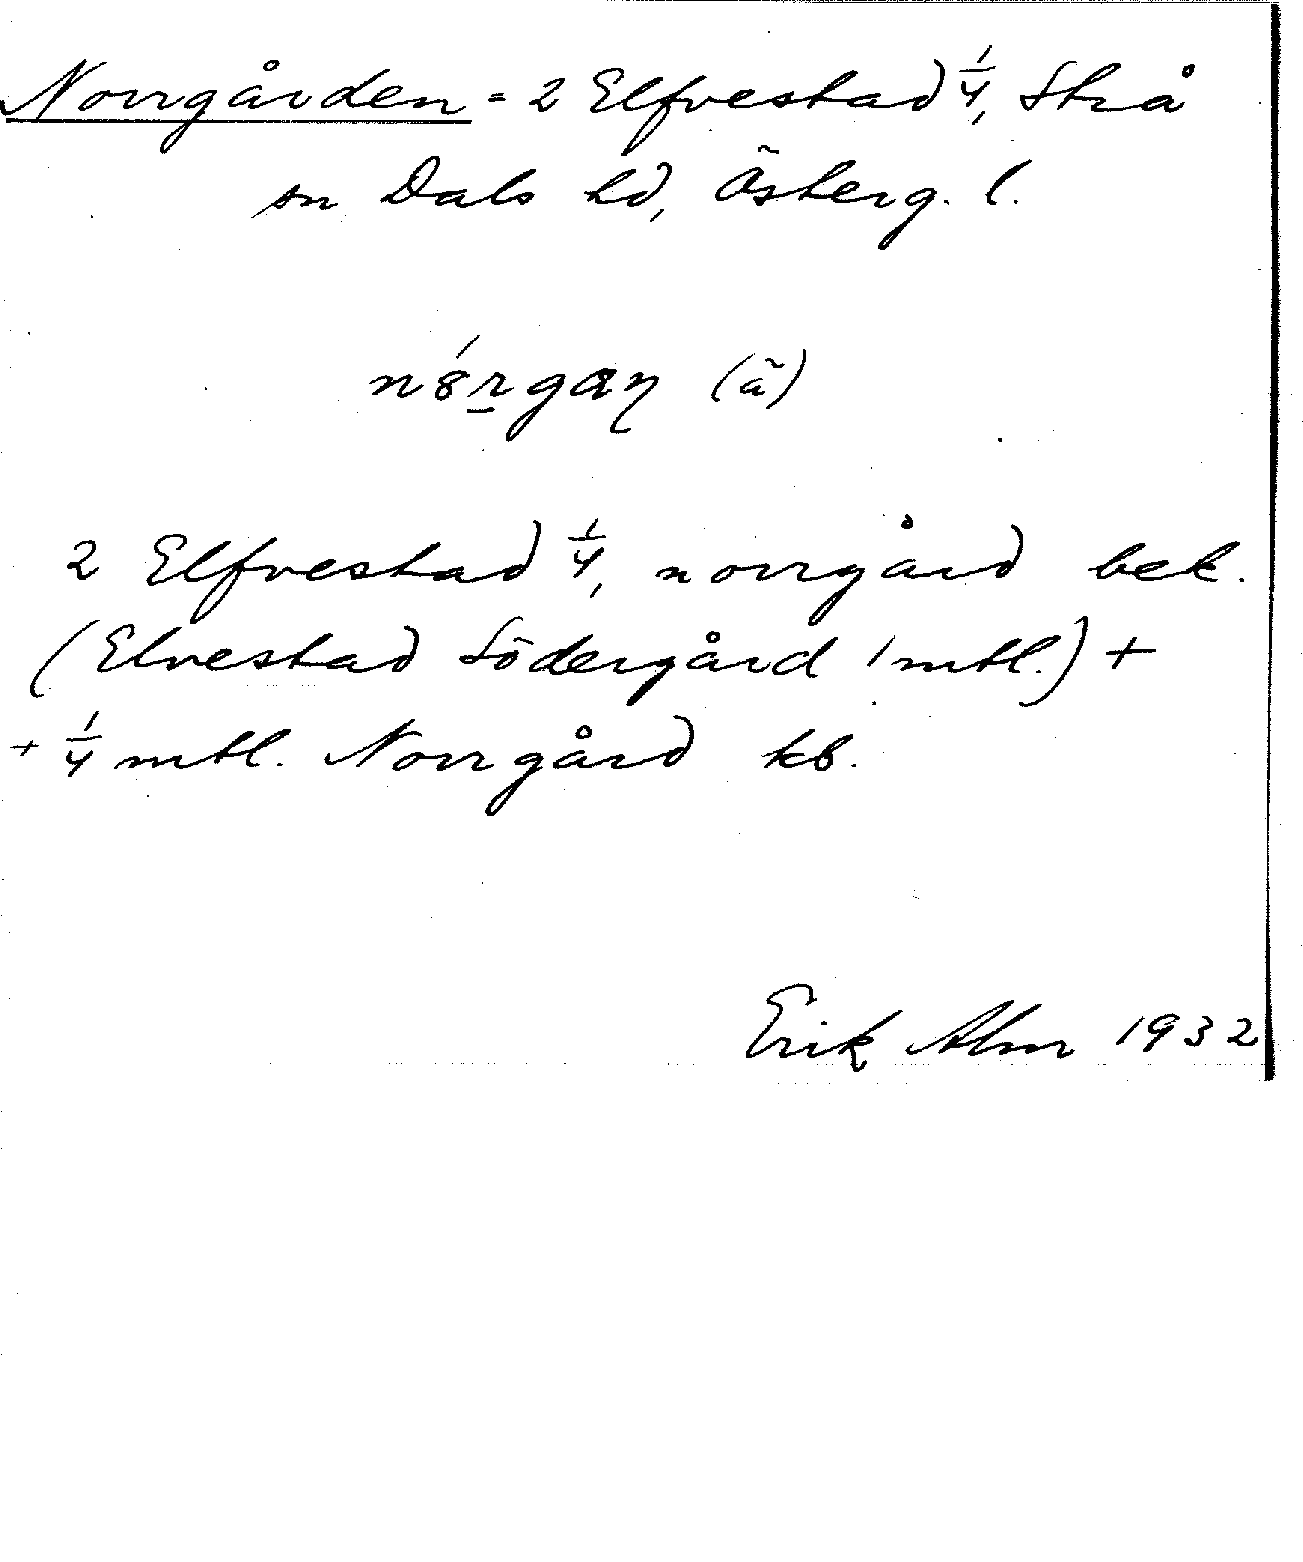 Norrgården = 2 Elfvestad 1/4, Strå
sn Dals hd, Österg. l.
n8́rgaŋ (ä)
2 Elfvestad 1/4, norrgård bek.
(Elvestad Södergård 1 mtl.) +
+ 1/4 mtl. Norrgård kb.
Erik Alm 1932